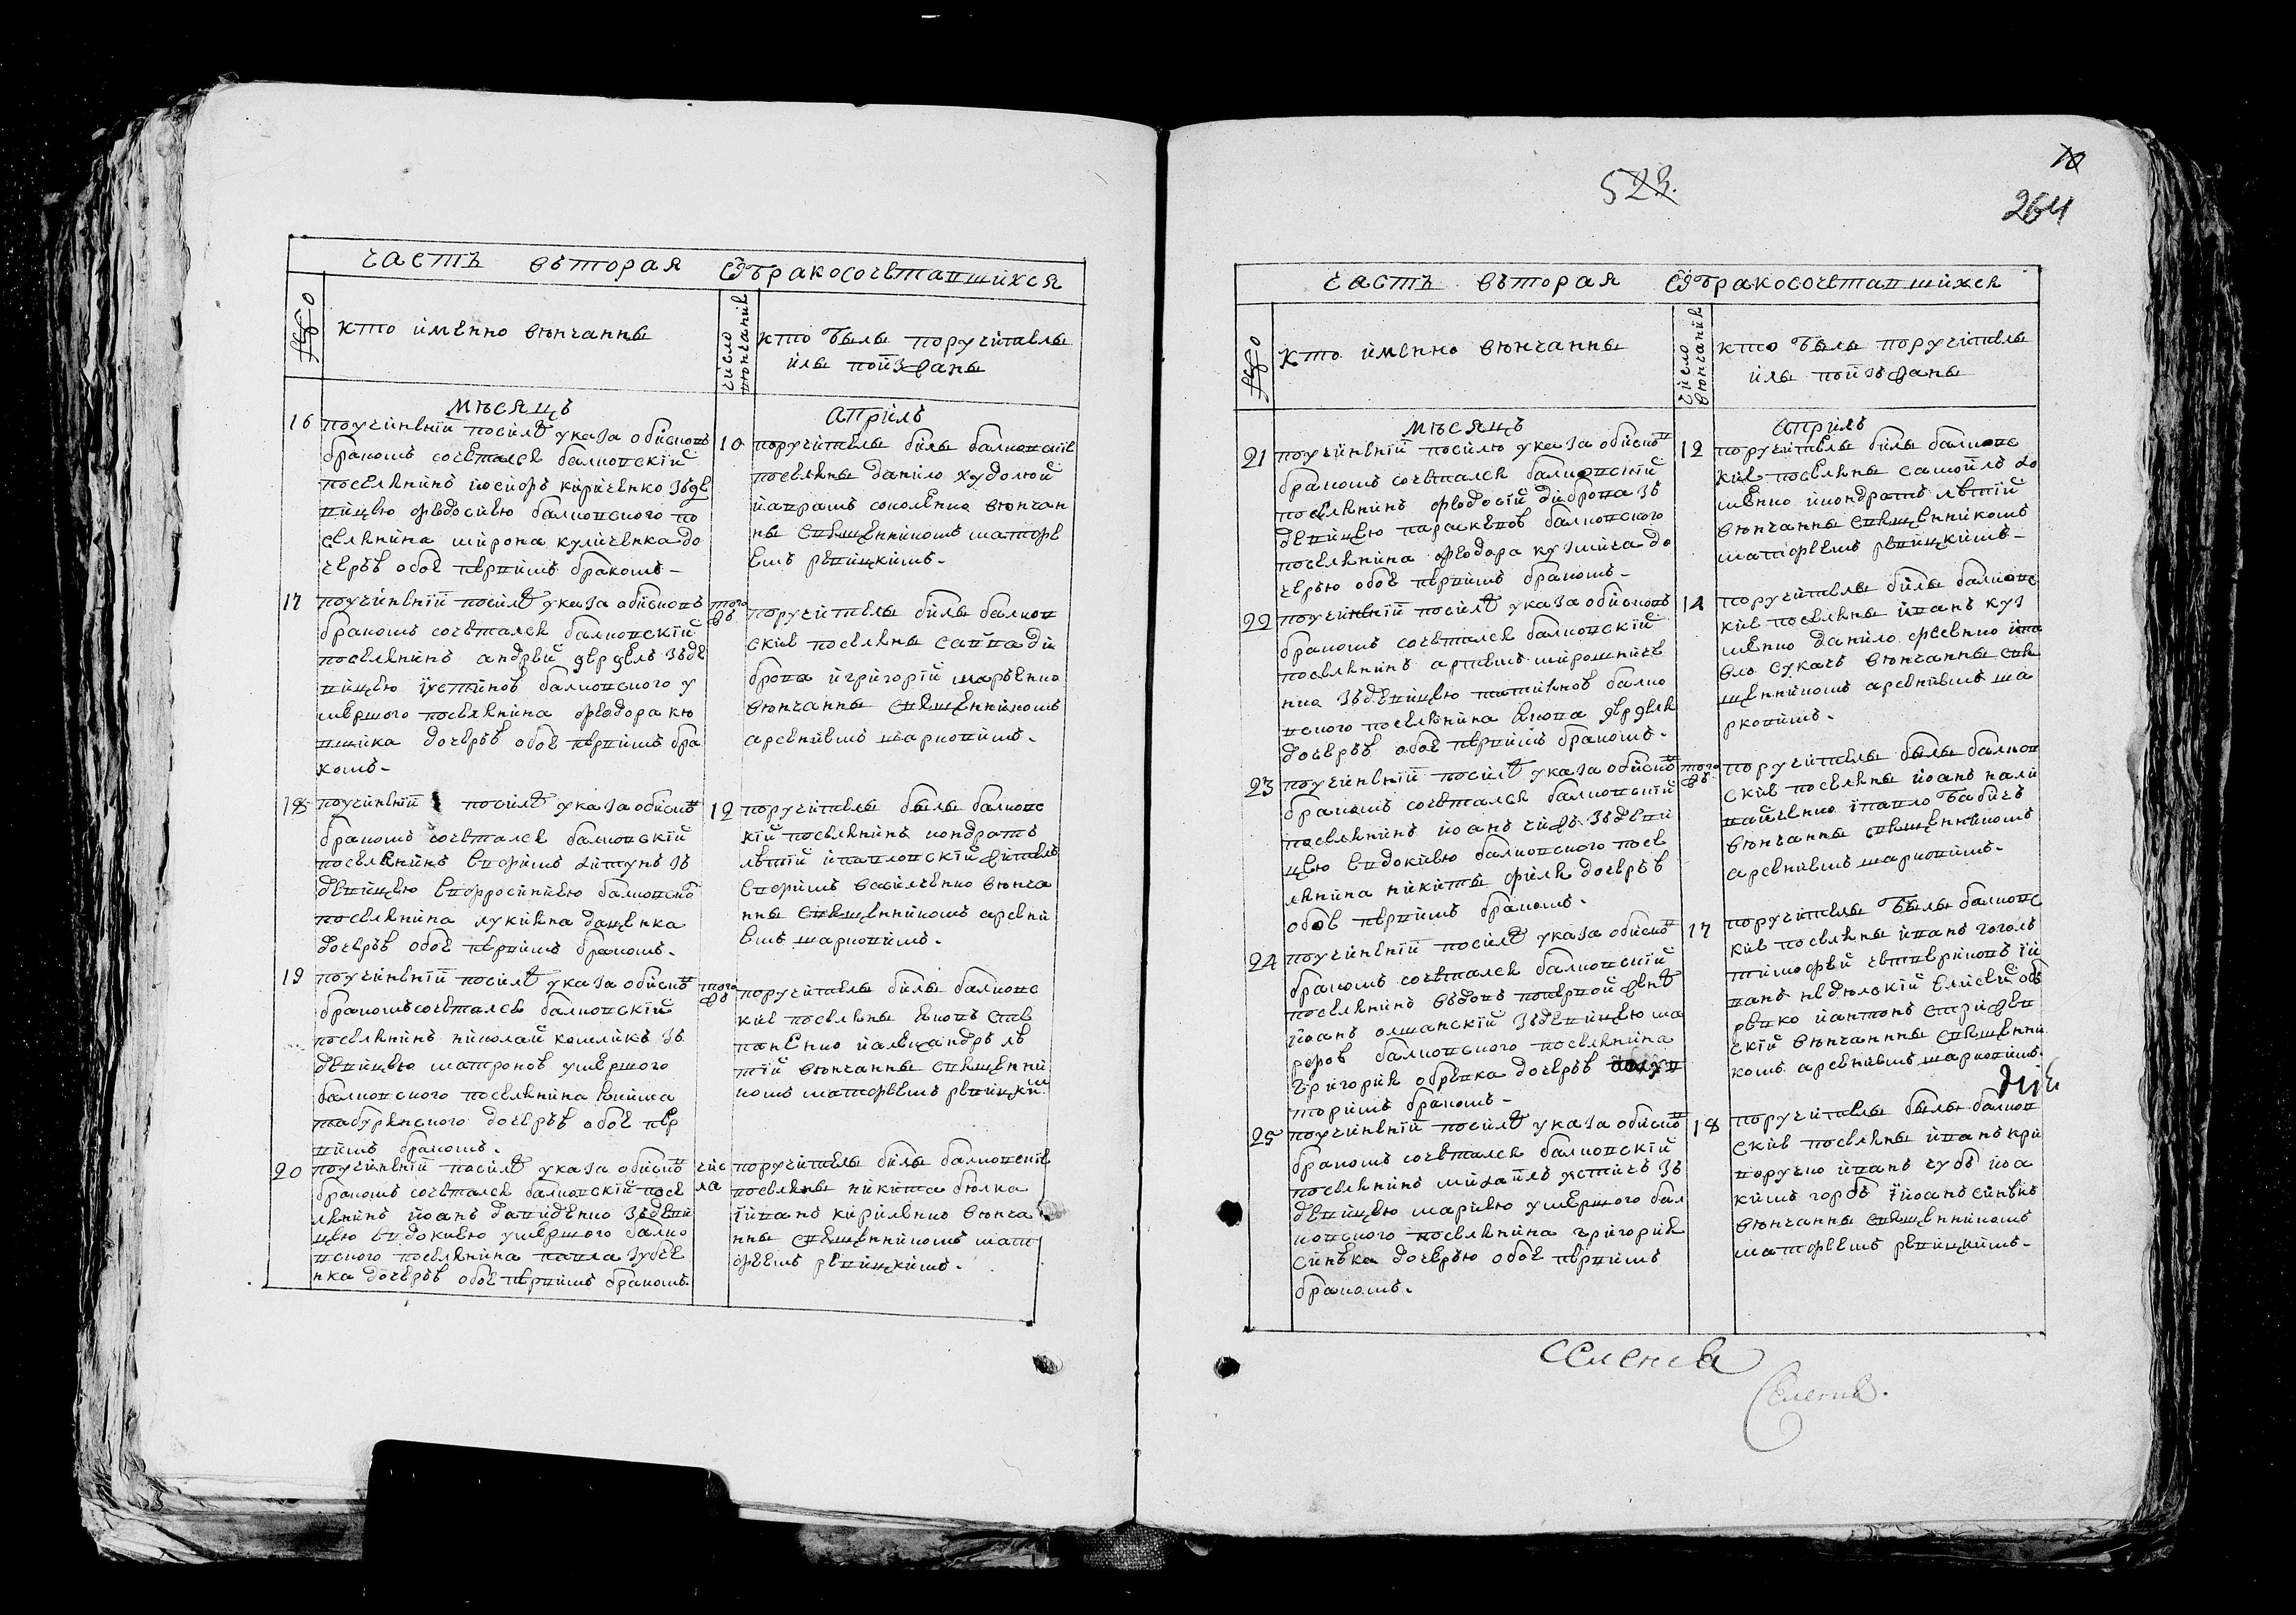 часть вторая Обракосочетавшихся
число
кто именно венчанны
число венчания
кто были поручители
или поизжаны
месяць
априль
16 поучиненій посилѣ указа обисковъ
бракомъ сочетался балковскій
поселянинъ иосифъ кириченко зъде
вицею феодосиею балковского по
селянина мирона куличенка до
черѣю обое первимъ бракомъ-
10 поручители били балковскіе
поселяны данило худолюй
икрамъ соколенко венчан
ны священникомъ матфе
емъ ревицкимъ.
17 поучиненій посилѣ указа обисковъ
бракомъ сочетался балковскій
поселянинъ андрей дердель зъде
вицею іустиною балковского у
мершого поселянина феодора кю
пшика дочерѣю обое первимъ бра
комъ-
того жъ
поручители били балков
скіе поселяны савва ди
брова игригорій марченко
венчанны священникомъ
арсениемъ марковимъ.
18 поучиненій посилѣ указа обисков
бракомъ сочетался балковскій
поселянинъ евфимъ литунъ зъ
девицею евфросиниею балковско
поселянина лукияна даценка
дочерѣю обое первимъ бракомъ.
12 поручители были балковс
кій поселянинъ кондратъ
летій ипавловскій житель
евфимъ василенко венча
нны священникомъ арсени
емъ марковимъ.
19 поучиненій посилѣ указа обисков
бракомъ сочетался балковскій
поселянинъ николай комликъ зъ
девицею матроною умершого
балковского поселянина якима
табуренского дочерѣю обое пер
вимъ бракомъ.
того жъ
поручители били балковс
кіе поселяны яковъ сте
паненко иалександръ ле
тій венчанны священни
комъ матфеемъ ревицким
20 поучиненій посилѣ указа обисков
бракомъ сочетался балковскій посе
лянинъ иоанъ давиденко зъдеви
цею евдокиею умершого балко
вского поселянина павла зубче
нка дочерѣю обое первимъ бракомъ.
чис
ла
поручители били балковскіе
поселяны никита бюлка
іиванъ кириленко венча
нны священникомъ мат
феемъ ревицкимъ.
523.
10
264
часть вторая Обракосочетавшихся
кто именно венчанны
число венчания
кто были поручители
или поизъжаны
месяць
априль
21 поучиненій посилю указа обисков
бракомъ сочетался балковскій
поселянинъ феодосій диброва зъ
девицею параскевою балковского
поселянина феодора кузмича до
черѣю обое первимъ бракомъ-
12 поручители били балковс
кіе поселяны самойлъ хо
менко икондратъ летій
венчанны священникомъ
матфеемъ ревицкимъ-
22 поучиненій посилѣ указа обисковъ
бракомъ сочетался балковскій
поселянинъ артемъ мирошниче
нко зъдевицею татияною балко
вского поселянина якова дерделя
дочерѣю обое первимъ бракомъ.
14 поручители били балковс
кіе поселяны иванъ куз
менко данило фесенко ипа
вло сукачъ венчанны свя
щенникомъ арсениемъ ма
рковимъ.
23 поучиненій посилѣ указа обисков
бракомъ сочетался балковскій
поселянинъ иоанъ чижъ зъдеви
цею евдокиею балковского посе
лянина никиты филя дочерѣю
обое первимъ бракомъ.
того жъ
поручители были балков
скіе поселяны иоанъ нали
вайченко іпавло бабичъ
венчанны священникомъ
арсениемъ марковимъ.
24 поучиненій посилѣ указа обисков
бракомъ сочетался балковскій
поселянинъ вдовъ попервой женѣ
иоанъ олшанскій зъдевицею ма
рфою балковского поселянина
григория обревка дочерѣю
торимъ бракомъ-
17 поручители были балковс
кіе поселяны иванъ гоголь
тимофей четвериковъ іи
ванъ недюлскій елисей об
ревко иантонъ стрижев
скій венчанны священни
комъ арсениемъ марковимъ.
25 поучиненій посилѣ указа обисков
бракомъ сочетался балковскій
поселянинъ михаилъ устичъ зъ
девицею мариею умершого бал
ковского поселянина григория
синѣка дочерѣю обое первимъ
бракомъ.
18 поручители были балков
скіе поселяны иванъ кри
воручко иванъ чубъ иоа
кимъ горбъ іиоанъ синѣкъ
венчанны священникомъ
матфеемъ ревицкимъ.